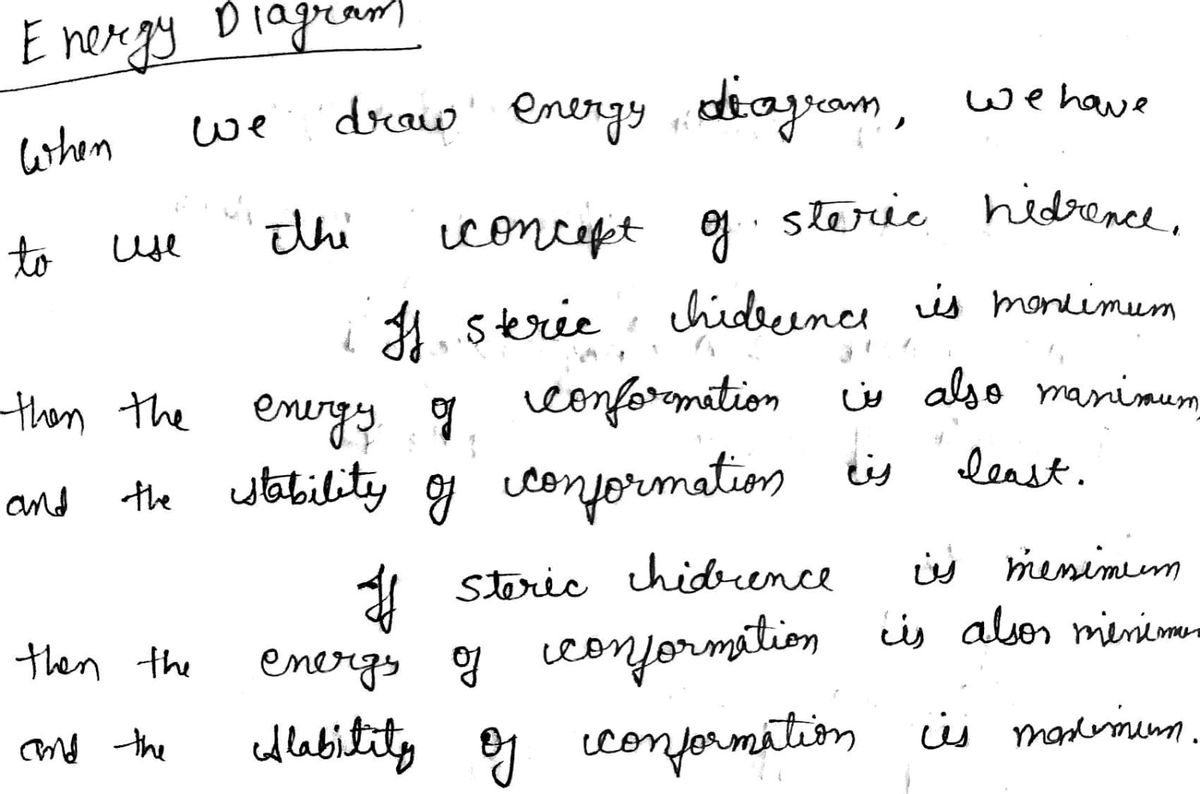 Energy Diagram
When we draw energy diagram, we have
to use the concept of steric hidrence.
If steric hidrence is maximum
then the energy of conformation is also maximum,
and the stability of conformation is least.
If steric hidrence is minimum
then the energy of conformation is also minimum
and the stability of conformation is maximum.